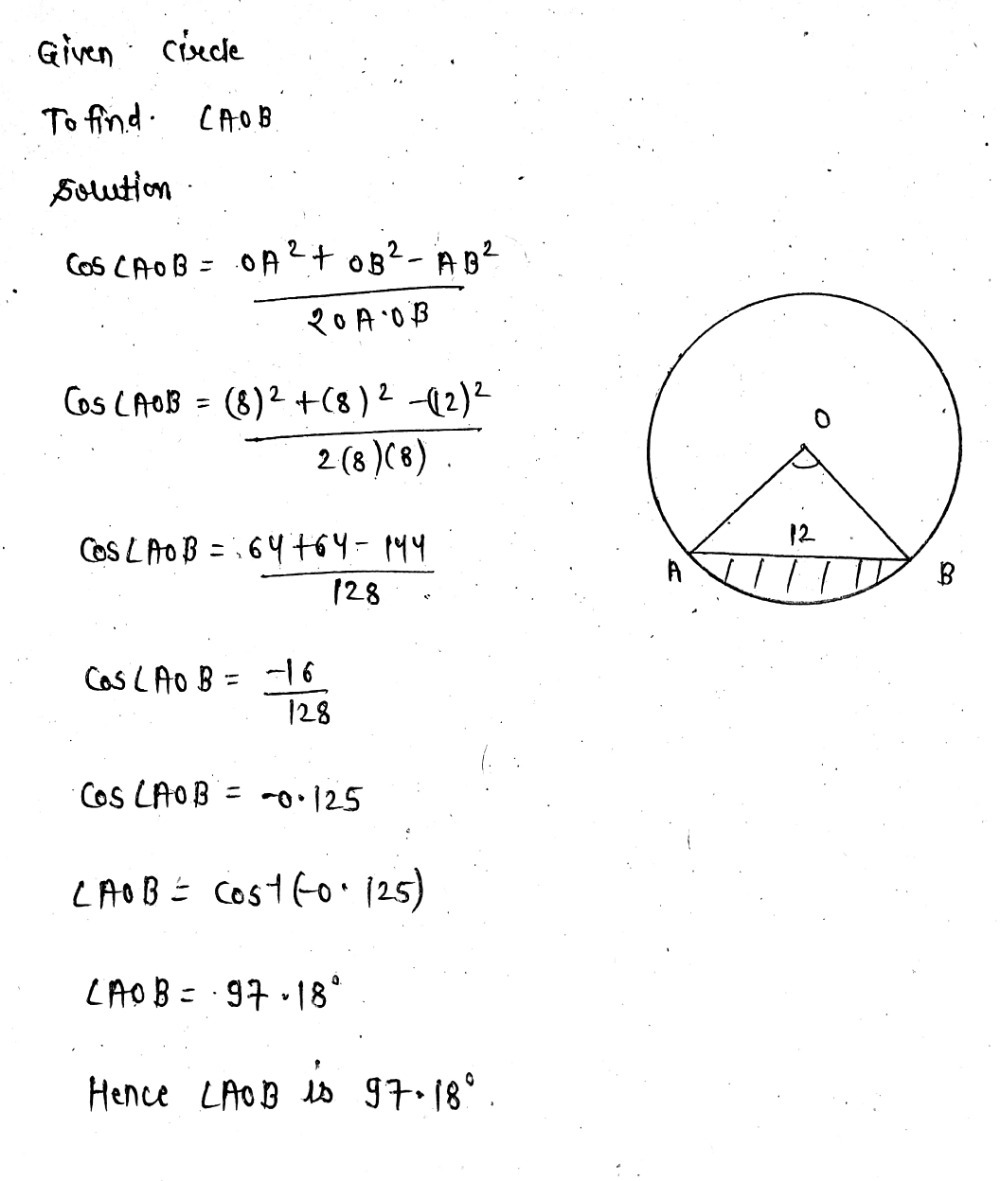 Given Circle
To find. ∠AOB
Solution
Cos ∠AOB = OA² + OB² - AB²
2OA·OB
Cos ∠AOB = (8)² + (8)² - (12)²
2(8)(8)
Cos ∠AOB = 64 + 64 - 144
128
Cos ∠AOB = -16
128
Cos ∠AOB = -0.125
∠AOB = cos-1 (-0.125)
∠AOB = 97.18°
Hence ∠AOB is 97.18°.
O
12
A
B